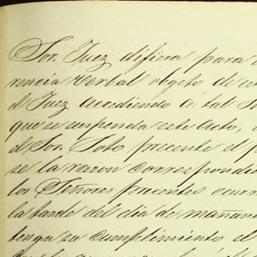 Sor. Juez difiera para
rencia verbal objeto de
el Juez accediendo á tal
que se suspenda este acto,
el Sor. Soto presente el
se la razon correspondi
los Señores presentes ocurr
la tarde del dia de mañan
tenga su cumplimiento el